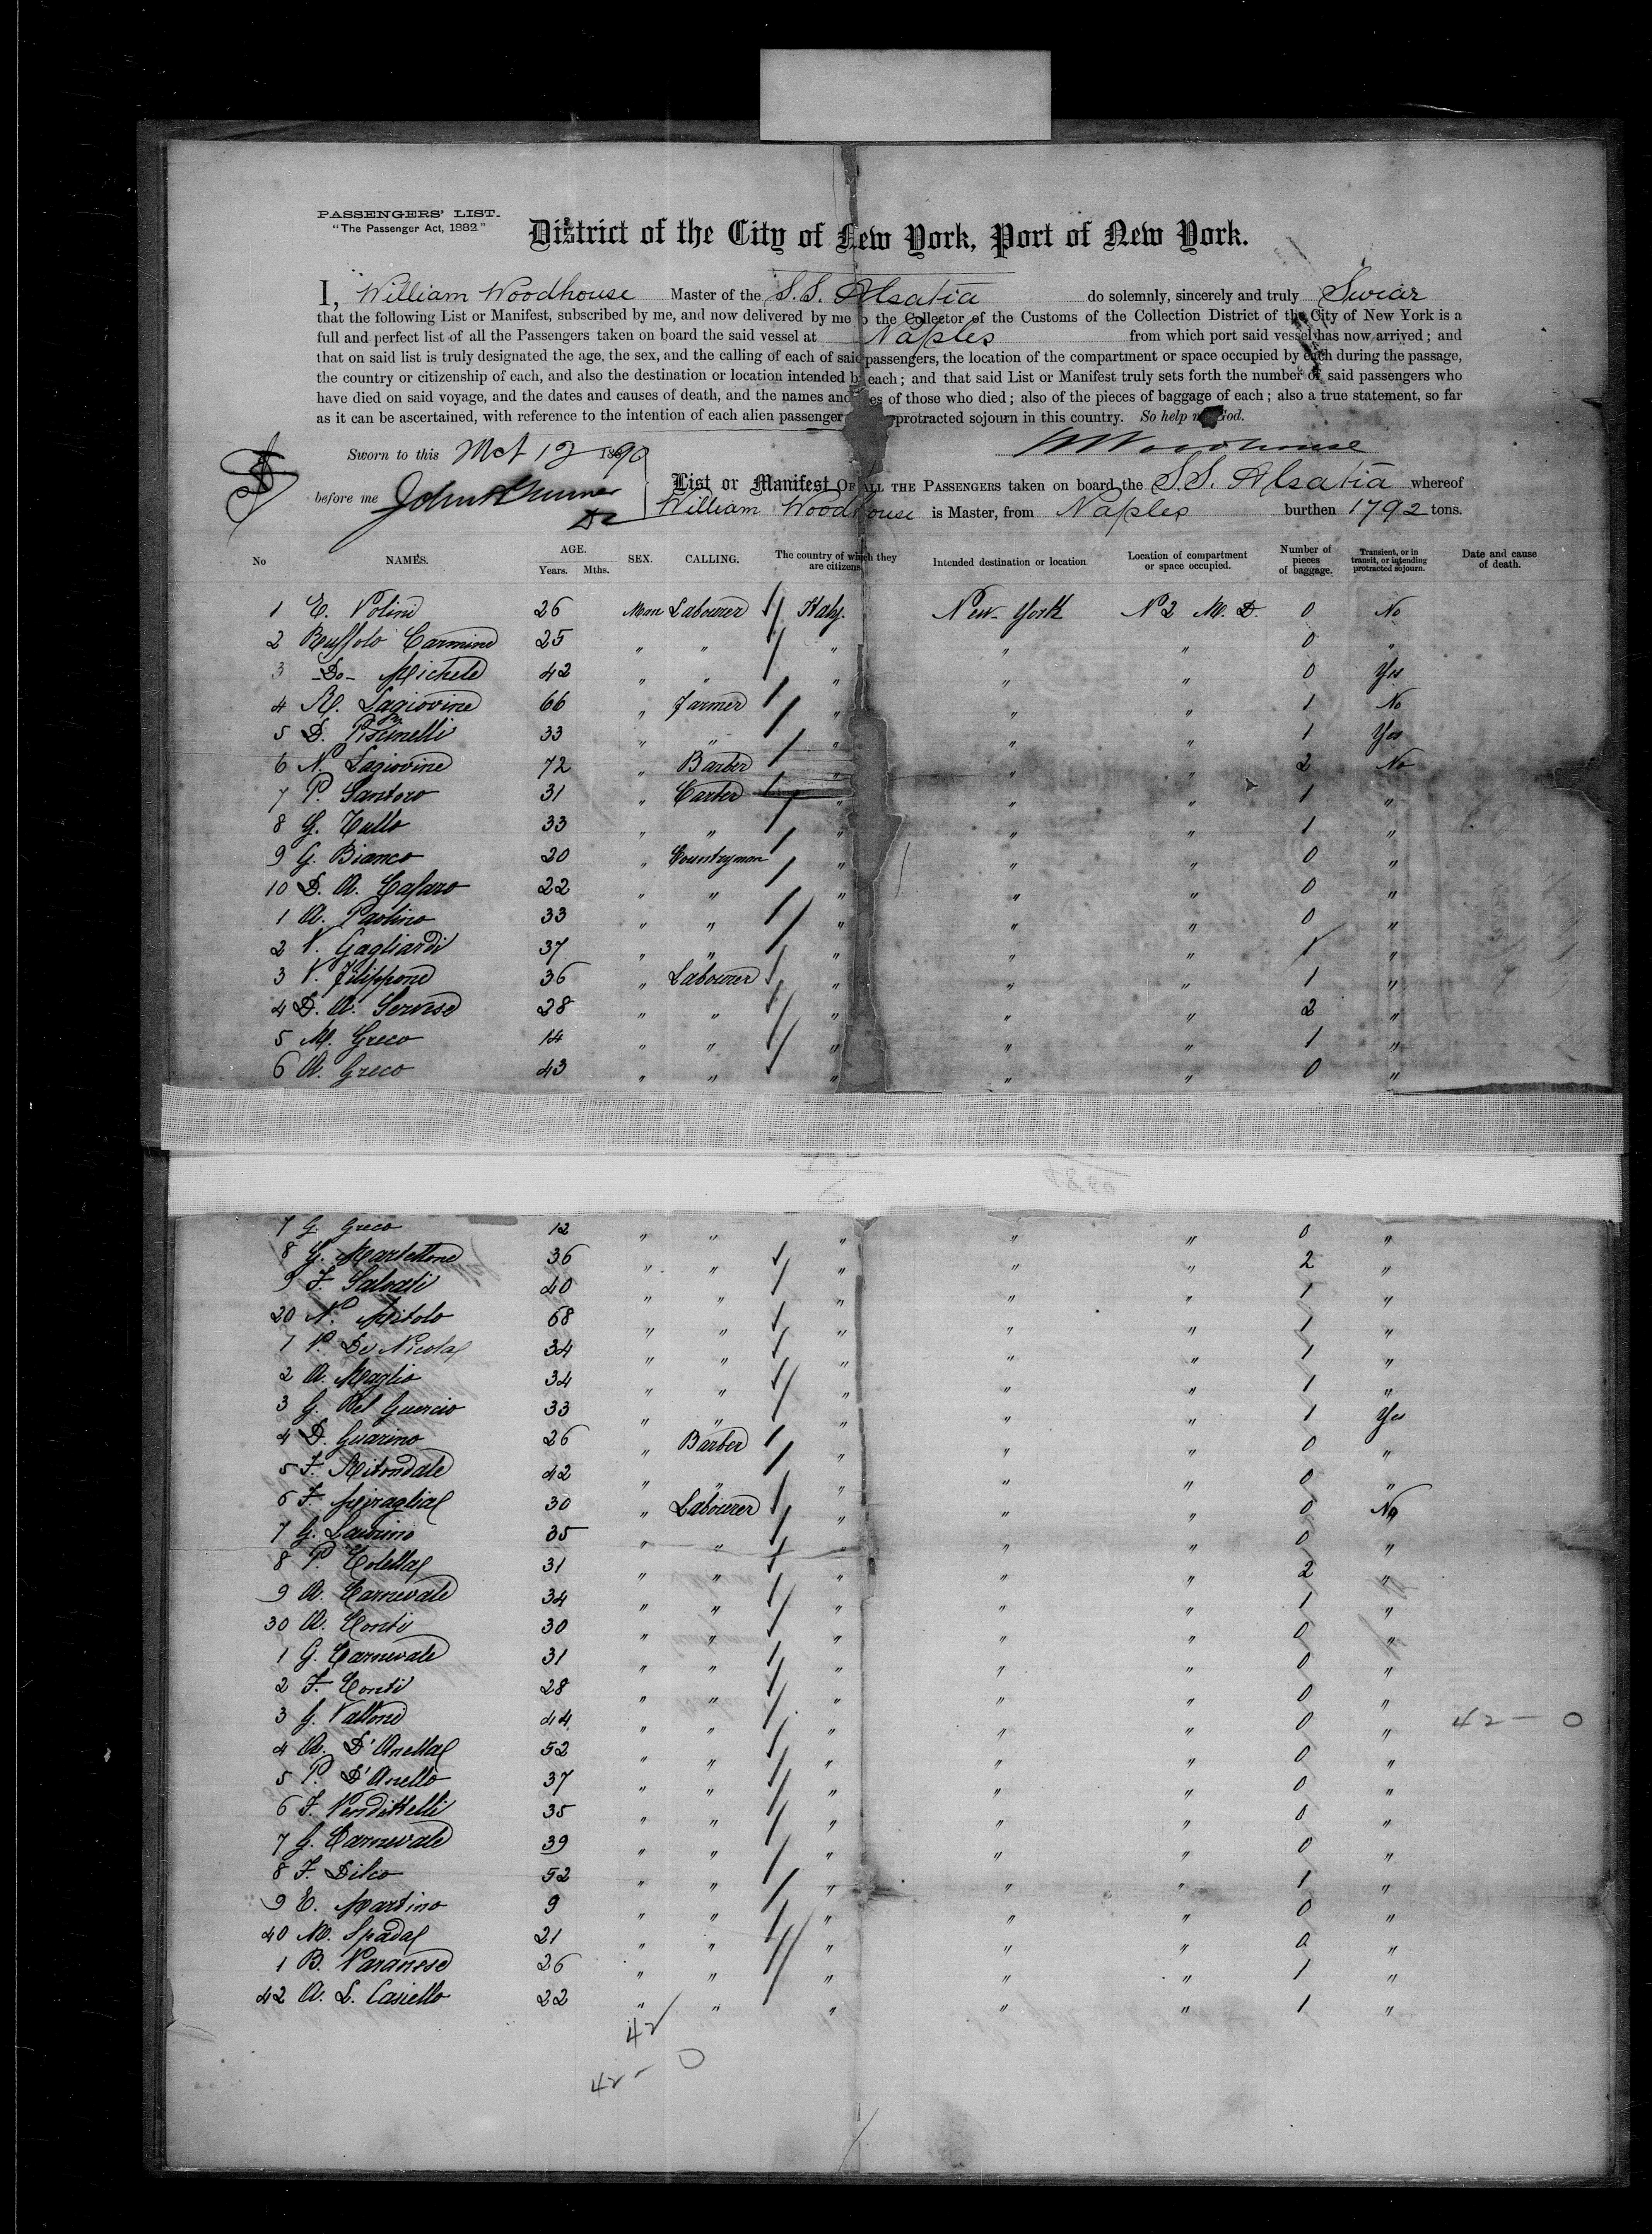 PASSENGERS' LIST.
"The Passenger Act, 1882"
District of the City of New York, Port of New York.
I, William Woodhouse Master of the S.S. Alsatia do solemnly, sincerely and truly Swear
that the following List or Manifest, subscribed by me, and now delivered by me to the Collector of the Customs of the Collection District of the City of New York is a
full and perfect list of all the Passengers taken on board the said vessel at Naples from which port said vessel has now arrived; and
that on said list is truly designated the age, the sex, and the calling of each of said passengers, the location of the compartment or space occupied by each during the passage,
the country or citizenship of each, and also the destination or location intended by each; and that said List or Manifest truly sets forth the number of said passengers who
have died on said voyage, and the dates and causes of death, and the names and es of those who died; also of the pieces of baggage of each; also a true statement, so far
as it can be ascertained, with reference to the intention of each alien passenger protracted sojourn in this country. So help me God.
Sworn to this 12 1890 W Woodhouse
before me John
List or Manifest OF ALL THE PASSENGERS taken on board the S.S. Alsatia whereof
William Woodhouse is Master, from Naples burthen 1792 tons.
No NAMES. AGE. Years. Mths. SEX. CALLING. The country of which they are citizens Intended destination or location Location of compartment or space occupied. Number of pieces of baggage. Transient, or in transit, or intending protracted sojourn. Date and cause of death.
1 E. Volini 26 Man Labourer Italy. New York N 2 M. D. 0 No
2 Ruffolo Carmine 25 " " " " " 0 "
3 -Do- Michele 42 " " " " " 0 Yes
4 R. Lagiovine 66 " Farmer " " " 1 No
5 D. 33 " " " " " 1 Yes
6 N. Lagiovine 72 " Barber " " " 2 No
7 P. Santoro 31 " Carter " " " 1 "
8 G. Tullo 33 " " " " " 1 "
9 G. Bianco 20 " Countryman " " " 0 "
10 D. A. Cafaro 22 " " " " " 0 "
1 A. Paolino 33 " " " " " 0 "
2 V. Gagliardi 37 " " " " " 1 "
3 V. Filippone 36 " Labourer " " " 1 "
4 D. A. Servese 28 " " " " " 2 "
5 M. Greco 14 " " " " " 1 "
6 A. Greco 43 " " " " " 0 "
7 G. Greco 12 " " " " " 0 "
8 G. Martellone 36 " " " " " 2 "
9 F. Salvati 40 " " " " " 1 "
20 N. Mitolo 68 " " " " " 1 "
1 V. De Nicola 34 " " " " " 1 "
2 A. Maglio 34 " " " " " 1 "
3 G. Del Guercio 33 " " " " " 1 Yes
4 D. Guarino 26 " Barber " " " 0 "
5 F. Ritondale 42 " " " " " 0 "
6 F. Miraglia 30 " Labourer " " " 0 No
7 G. Laurino 35 " " " " " 0 "
8 P. Colella 31 " " " " " 2 "
9 A. Carnevale 34 " " " " " 1 "
30 A. Conti 30 " " " " " 0 "
1 G. Carnevale 31 " " " " " 0 "
2 F. Conti 28 " " " " " 0 "
3 G. Vallone 44 " " " " " 0 " 42 - 0
4 A. D'Anella 52 " " " " " 0 "
5 P. D'Anello 37 " " " " " 0 "
6 F. Vendittelli 35 " " " " " 0 "
7 G. Carnevale 39 " " " " " 0 "
8 F. Dilco 52 " " " " " 1 "
9 E. Martino 9 " " " " " 0 "
40 M. Spada 21 " " " " " 0 "
1 B. Varanese 26 " " " " " 1 "
42 A. L. Casiello 22 " " " " " 1 "
42
42 - 0